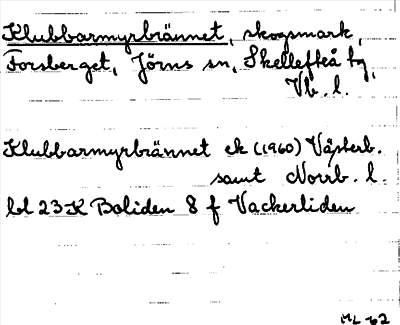 Klubbarmyrbrännet, skogsmark,
Forsberget, Jörns sn, Skellefteå tg,
Vb. l.
Klubbarmyrbrännet ek (1960) Västerb.
samt Norrb. l.
bl 23 K Boliden 8 f Vackerliden
ML -62